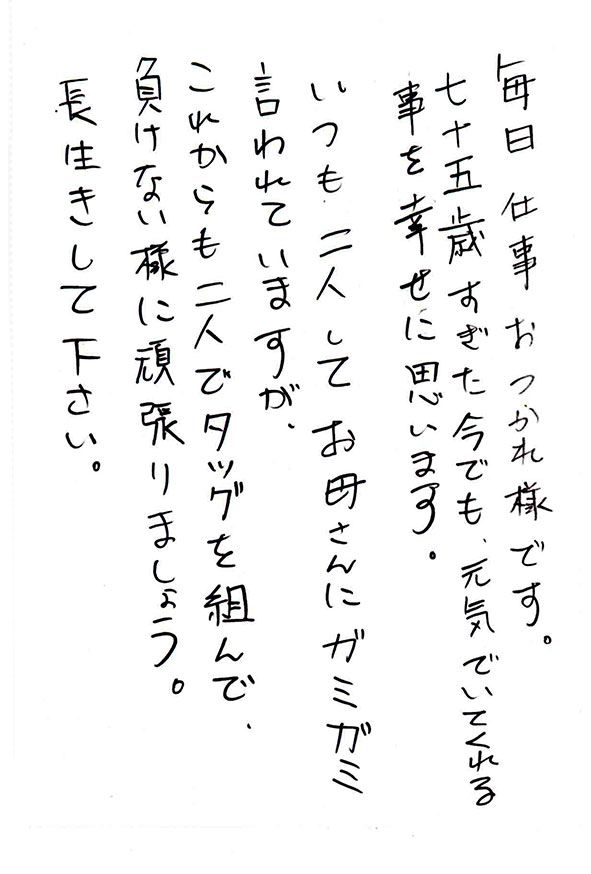 毎日仕事おつかれ様です。
七十五歳すぎた今でも、元気でいてくれる
事を幸せに思います。
いつも二人してお母さんにガミガミ
言われていますが、
これからも二人でタッグを組んで、
負けない様に頑張りましょう。
長生きして下さい。